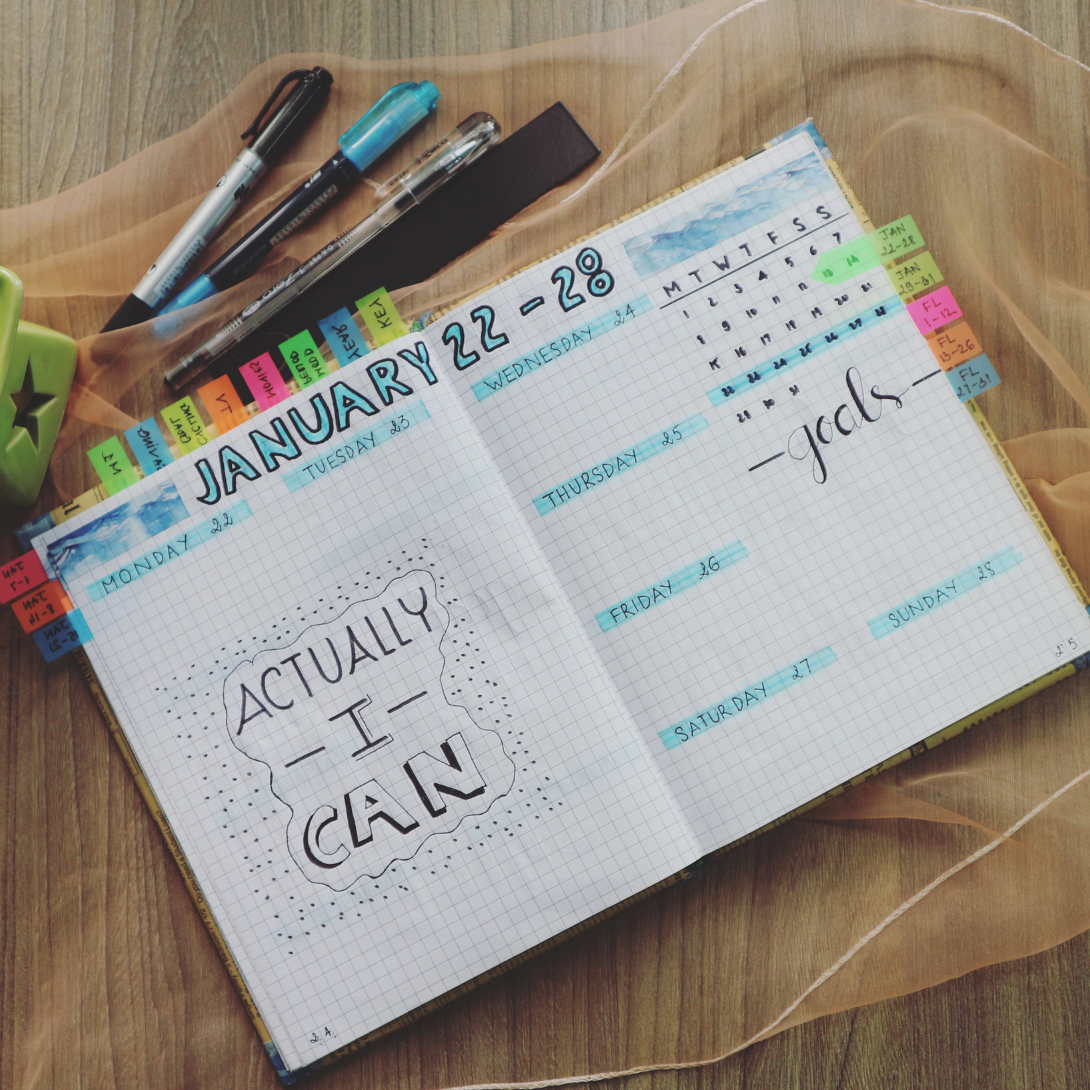 JANUARY 22-28
MONDAY 22
TUESDAY 23
ACTUALLY
-I-
CAN
24
WEDNESDAY 24
THURSDAY 25
FRIDAY 26
SATURDAY 27
SUNDAY 28
M T W T F S S
1 2 3 4 5 6 7
8 9 10 11 12 13 14
15 16 17 18 19 20 21
22 23 24 25 26 27 28
29 30 31
-goals-
25
KEY
YEAR
MOVIES
TV
JAN
1-7
JAN
8-14
JAN
15-21
JAN
22-28
JAN
29-31
FL
1-12
FL
13-26
FL
27-31